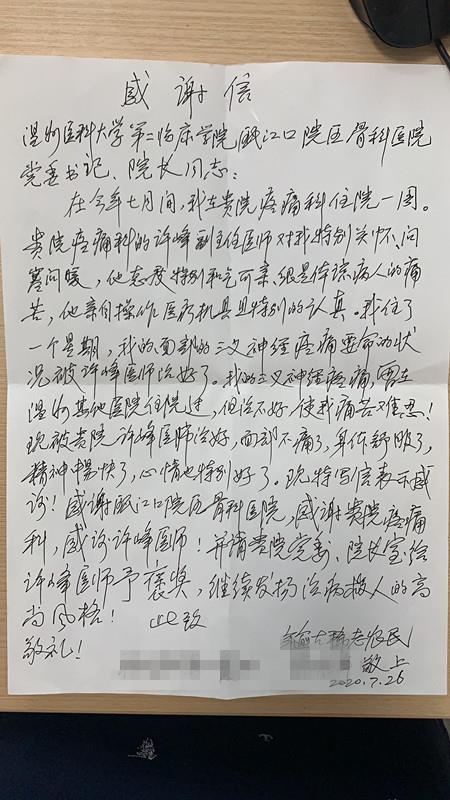 感谢信
温州医科大学第二临床学院瓯江口院区骨科医院
党委书记、院长同志：
在今年七月间，我在贵院疼痛科住院一周。
贵院疼痛科的许峰副主任医师对我特别关怀、问
寒问暖，他态度特别和气可亲、很是体谅病人的痛
苦，他亲自操作医疗机具且特别的认真。我住了
一个星期，我的面部的三叉神经疼痛要命的状
况被许峰医师治好了。我的三叉神经疼痛，曾在
温州其他医院住院过，但治不好，使我痛苦难忍！
现被贵院许峰医师治好，面部不痛了，身体舒服了，
精神畅快了，心情也特别好了。现特写信表示感
谢！感谢瓯江口院区骨科医院，感谢贵院疼痛
科，感谢许峰医师！并请贵院党委、院长室给
许峰医师予褒奖，继续发扬治病救人的高
尚风格！ 此致
敬礼！
古稀老农民
敬上
2020.7.26